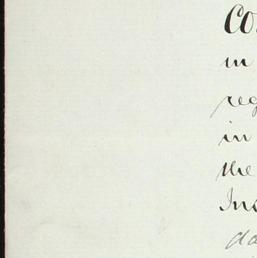 Co
in
reg
in
the
Ins
da